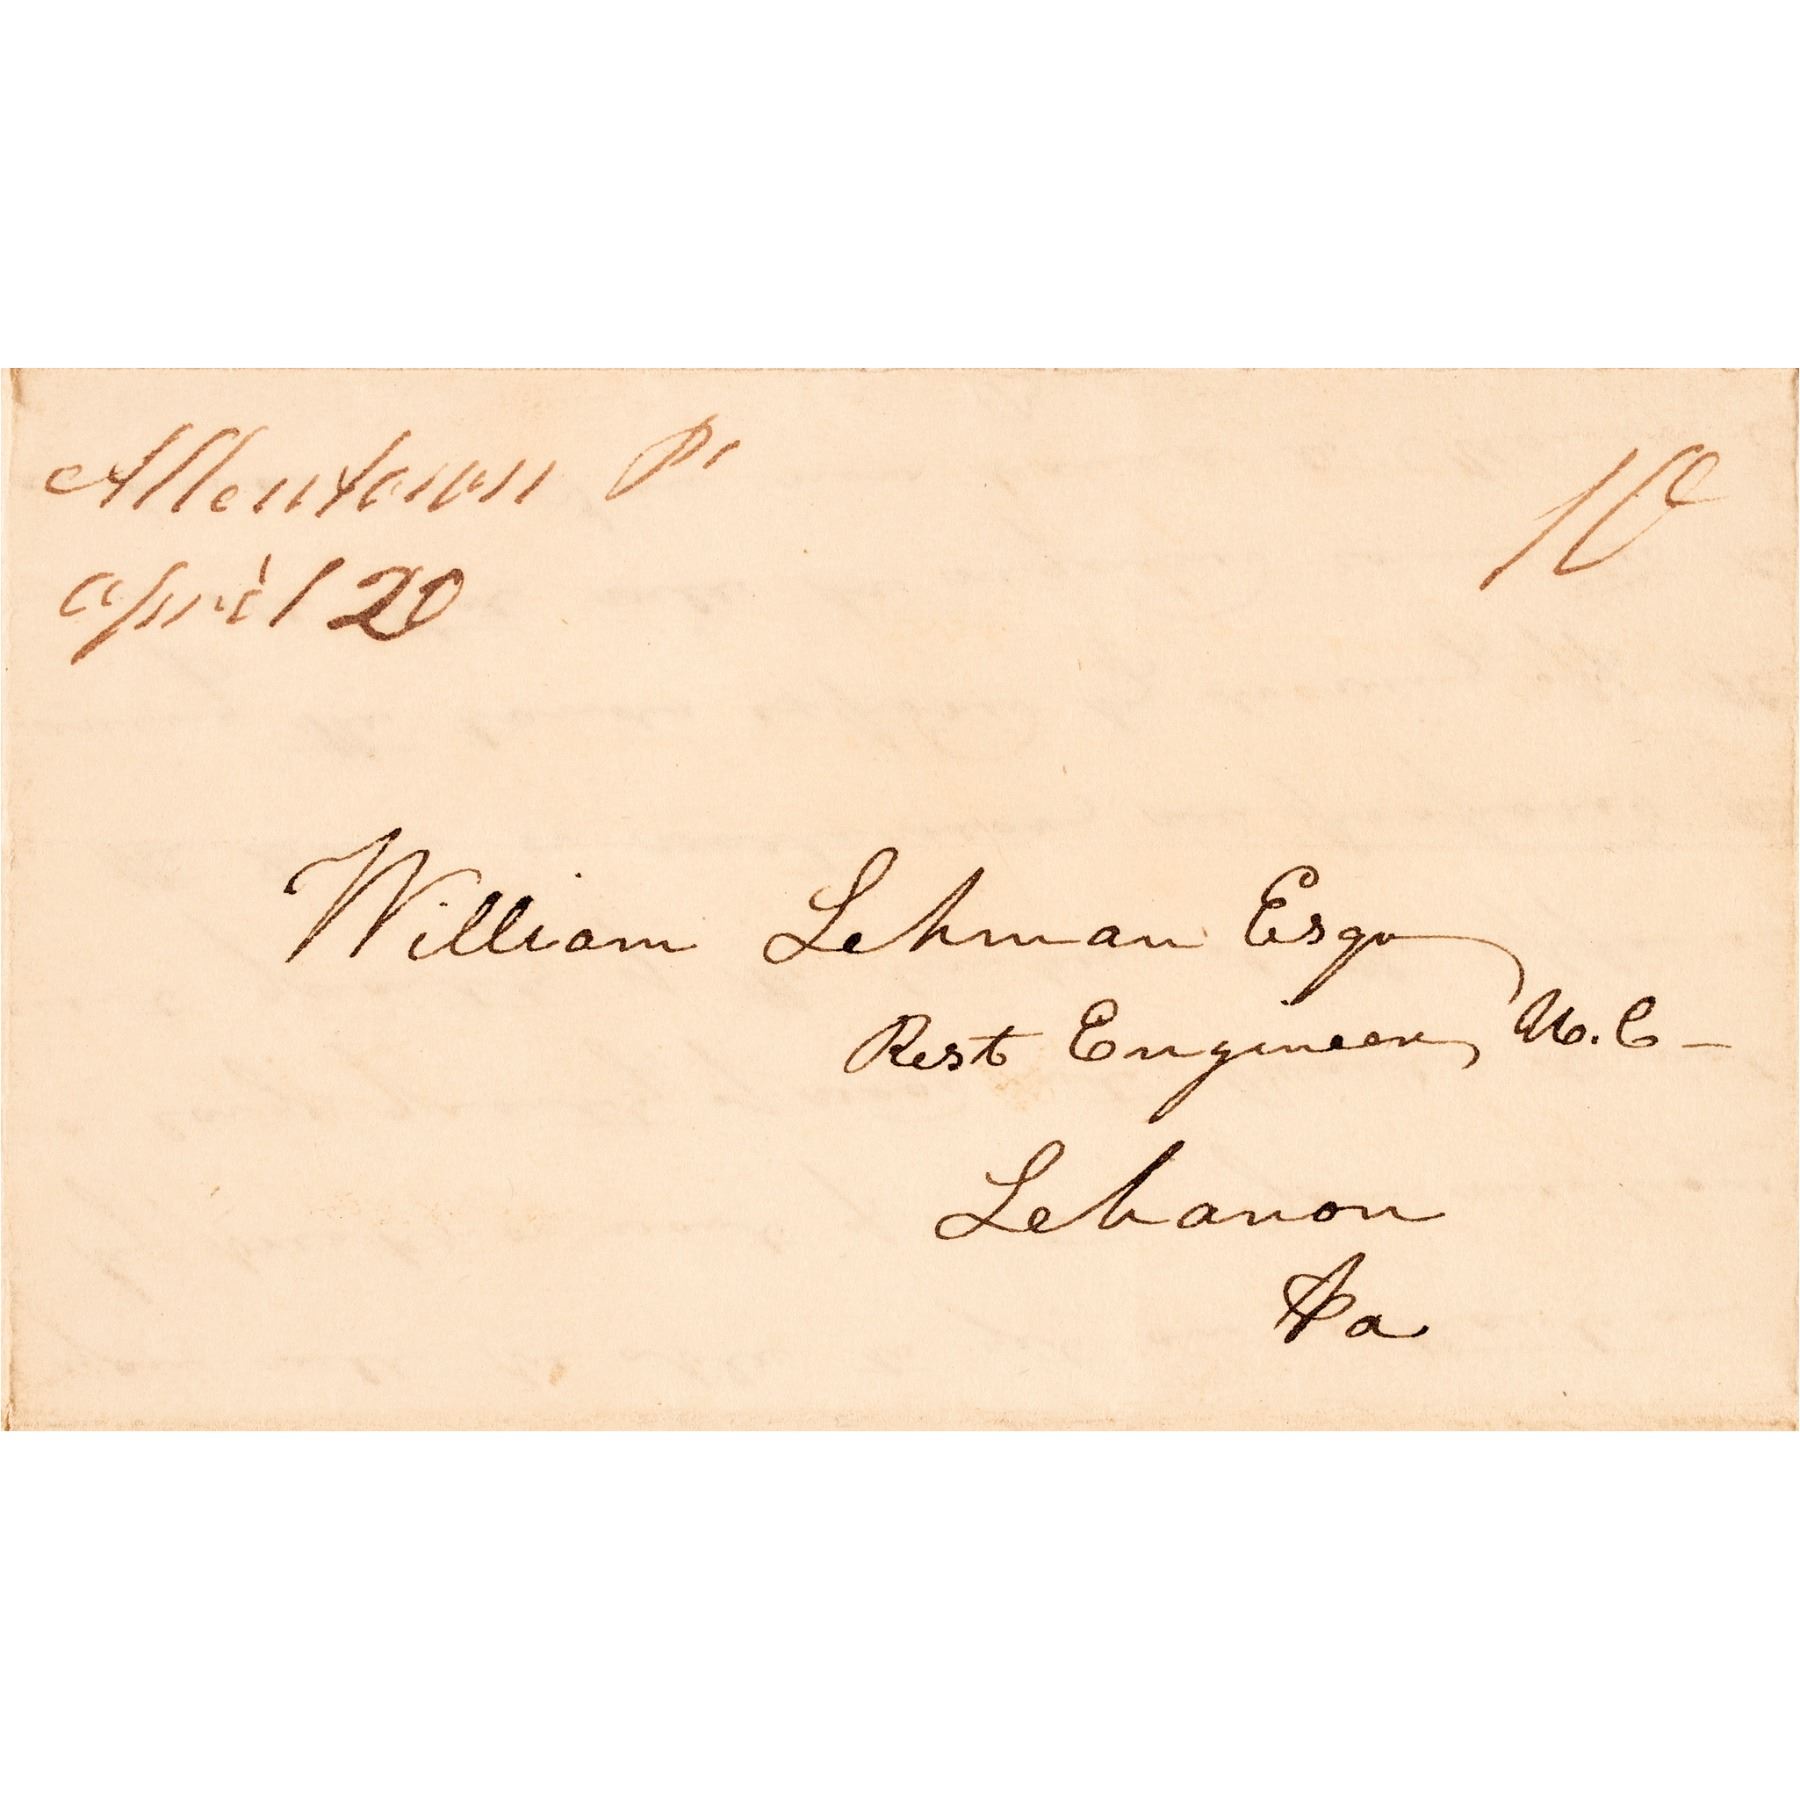 Allentown Pa
April 20
10
William Lehman Esqr
Rest Engineer, U.C-
Lebanon
Pa